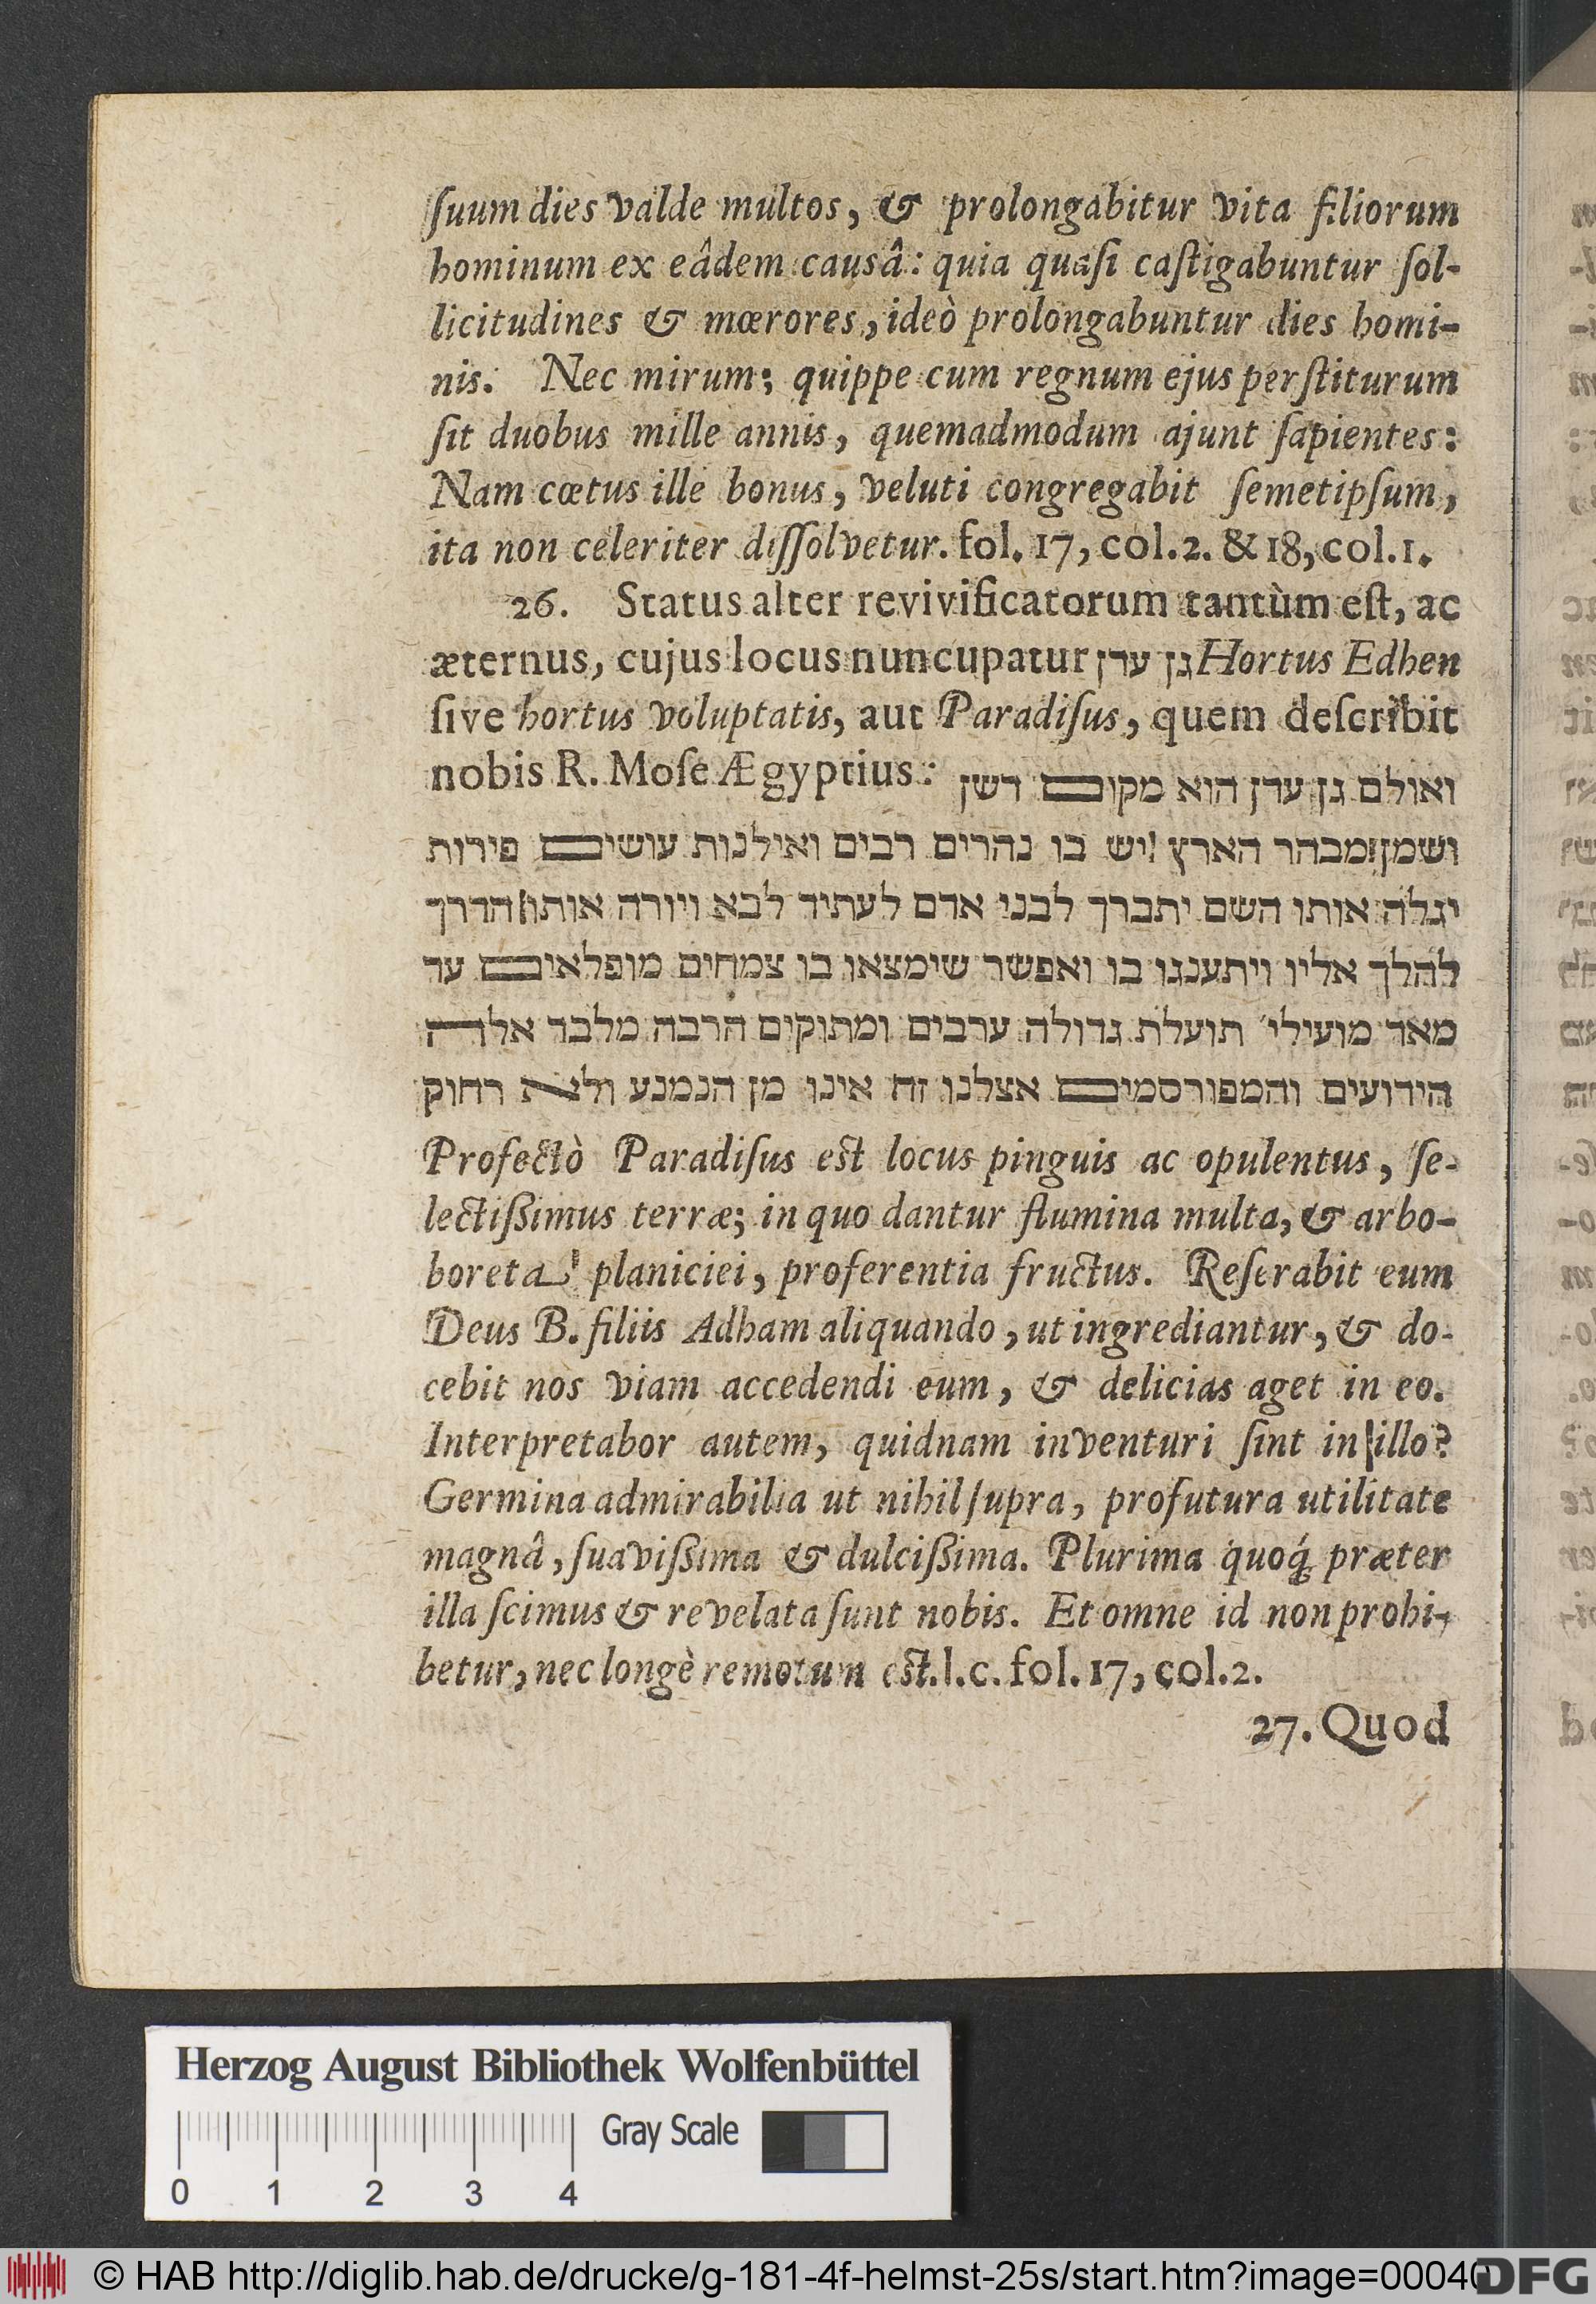 ſuum dies valde multos, & prolongabitur vita filiorum
hominum ex eâdem causâ: quia quaſi caſtigabuntur ſol-
licitudines & mœrores, ideò prolongabuntur dies homi-
nis. Nec mirum; quippe cum regnum ejus perſtiturum
ſit duobus mille annis, quemadmodum ajunt ſapientes:
Nam cœtus ille bonus, veluti congregabit ſemetipſum,
ita non celeriter diſſolvetur. fol. 17, col. 2. & 18, col. 1.
26. Status alter revivificatorum tantùm eſt, ac
æternus, cujus locus nuncupatur גן ערן Hortus Edhen
ſive hortus voluptatis, aut Paradiſus, quem deſcribit
nobis R. Moſe Ægyptius: ואולם גן ערן הוא מקום דשן
ושמן מבהר הארץ יש בו נהרים רבים ואילנות עושים פירות
יגלה אותו השם יתברך לבני אדם לעתיד לבא ויורה אותו הדרך
להלך אליו ויתענגו בו ואפשר שימצאו בו צמחים מופלאים עד
מאד מועילי׳ תועלת גדולה ערבים ומתוקים הרבה מלבד אלה
הידועים והמפורסמים אצלנו זה אינו מן הנמנע ולא רחוק
Profectò Paradiſus eſt locus pinguis ac opulentus, ſe-
lectiſsimus terræ; in quo dantur flumina multa, & arbo-
boreta planiciei, proferentia fructus. Reſerabit eum
Deus B. filiis Adham aliquando, ut ingrediantur, & do-
cebit nos viam accedendi eum, & delicias aget in eo.
Interpretabor autem, quidnam inventuri ſint in illo?
Germina admirabilia ut nihil ſupra, profutura utilitate
magnâ, ſuaviſsima & dulciſsima. Plurima quoq́; præter
illa ſcimus & revelata ſunt nobis. Et omne id non prohi-
betur, nec longè remotum eſt. l.c. fol. 17, col. 2.
27. Quod
Herzog August Bibliothek Wolfenbüttel
Gray Scale
0 1 2 3 4
© HAB http://diglib.hab.de/drucke/g-181-4f-helmst-25s/start.htm?image=00040
DFG